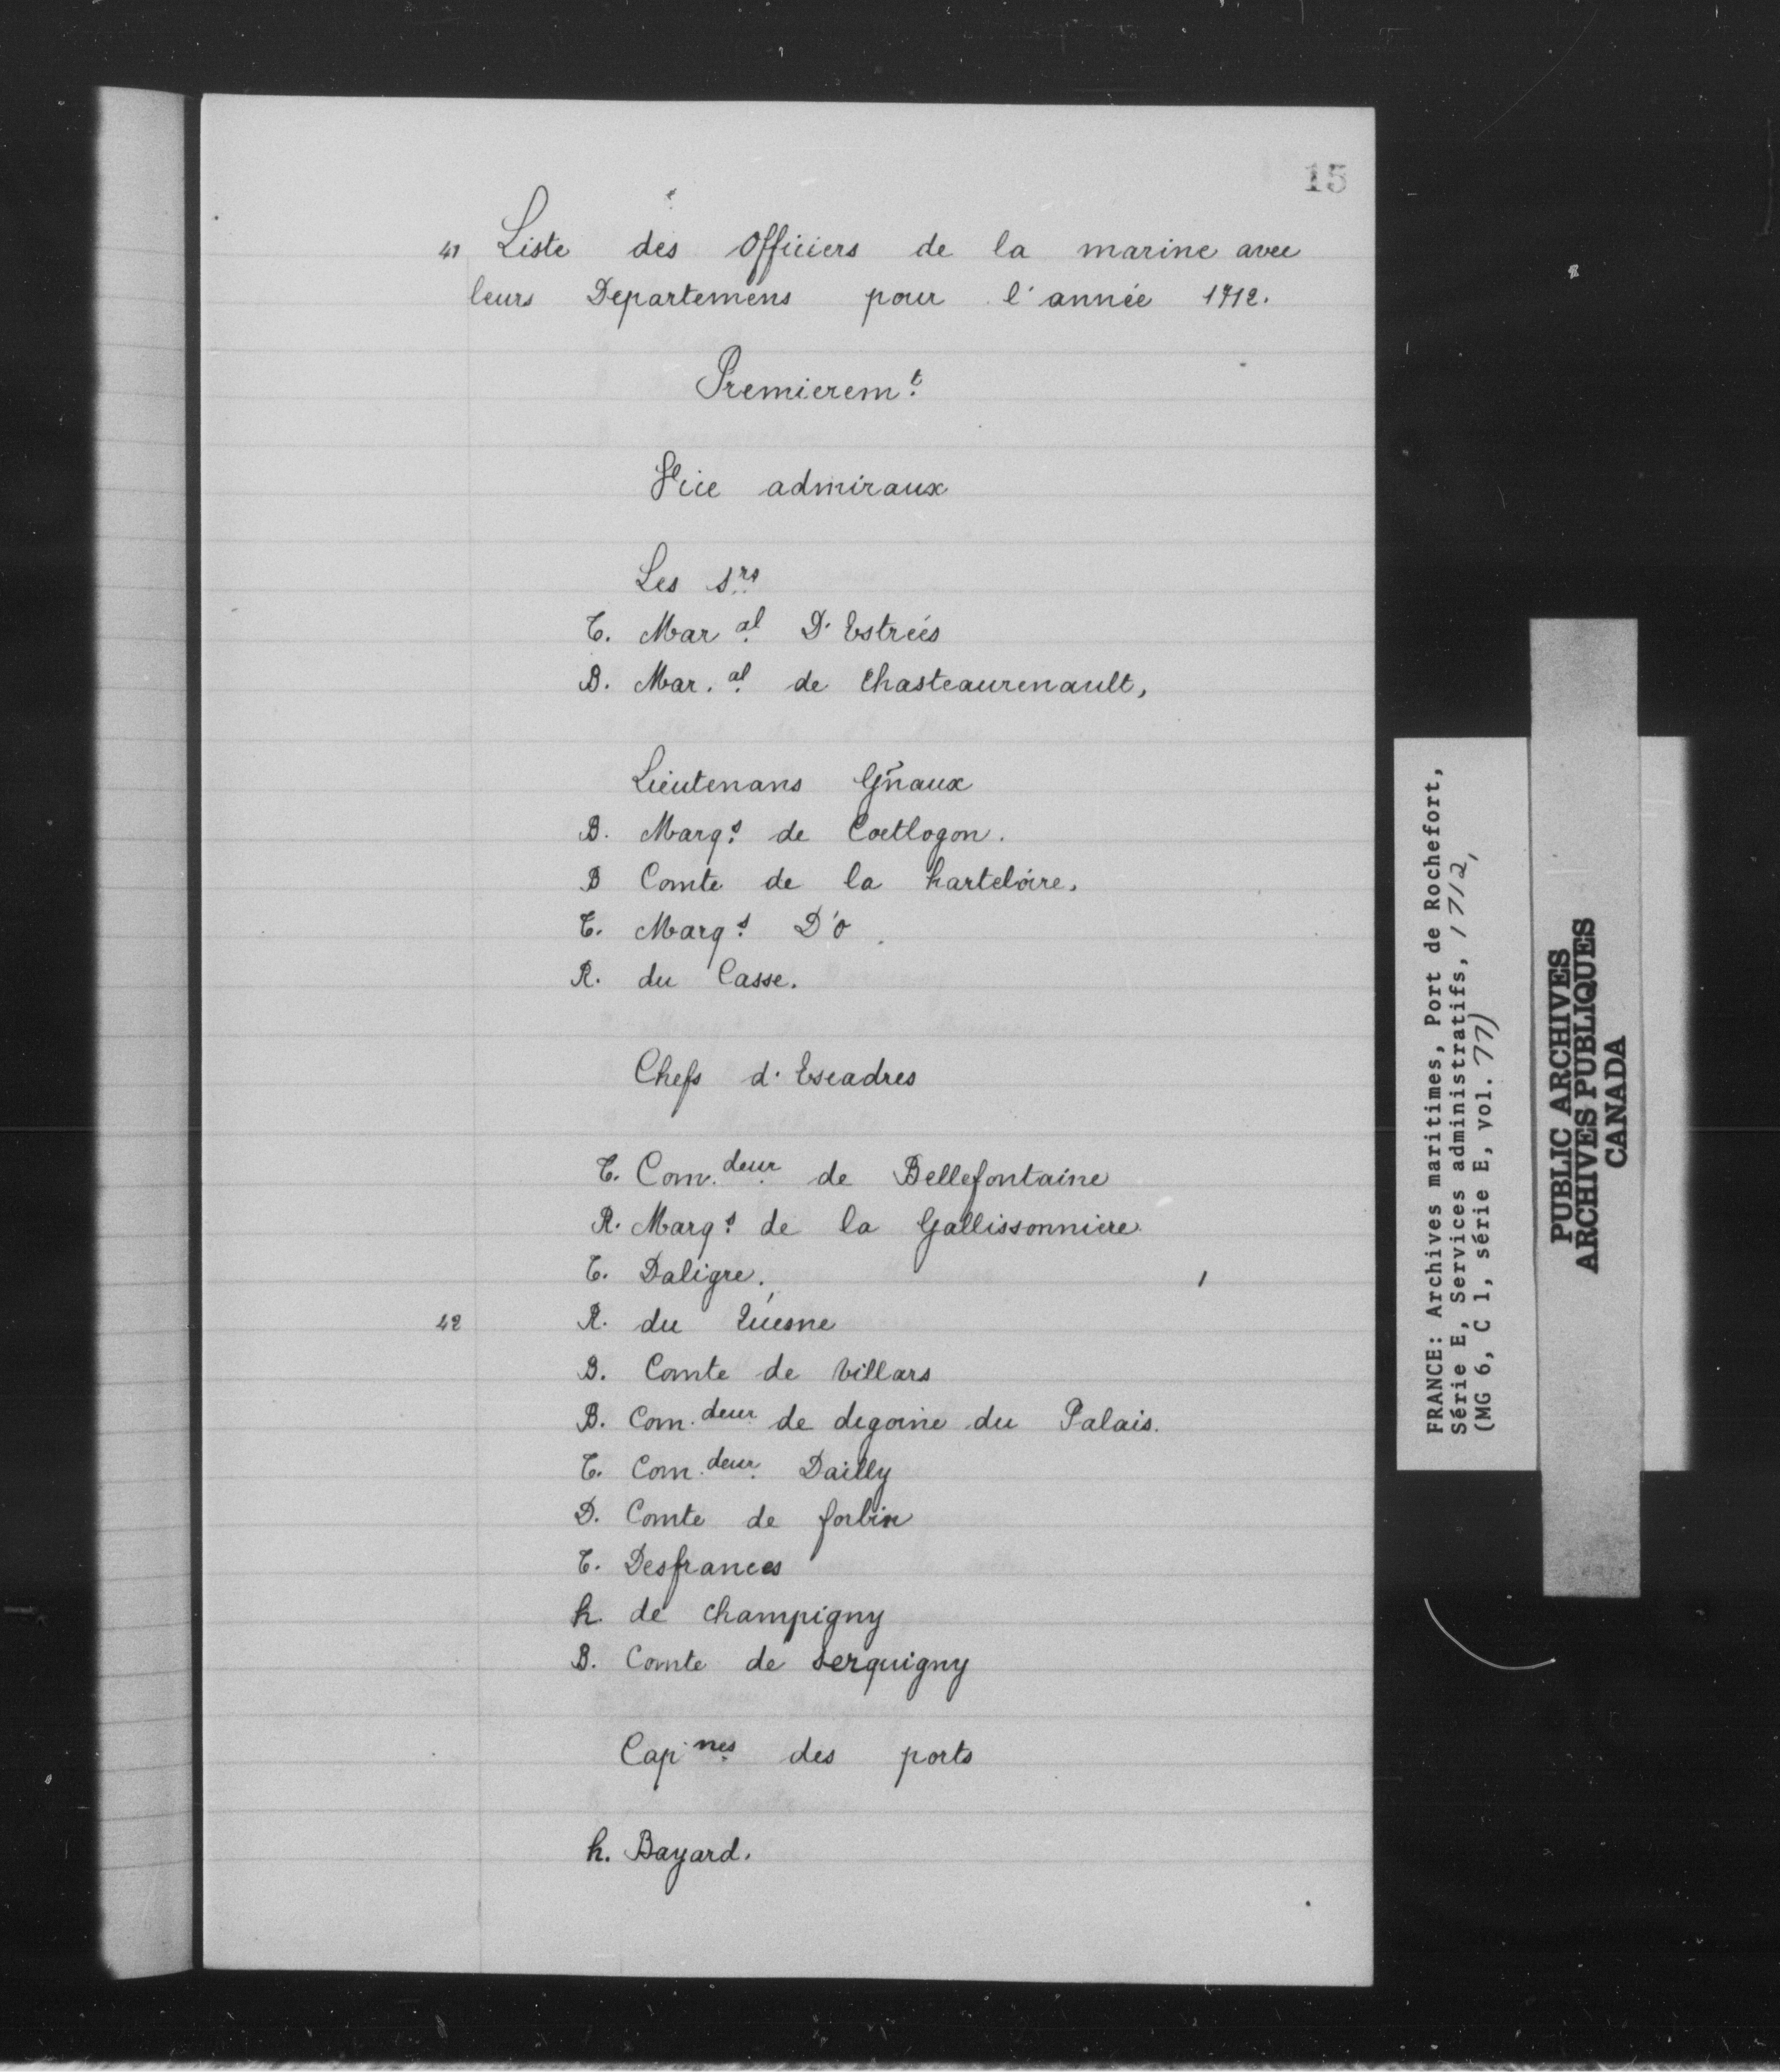 15
41 Liste des Officiers de la marine avec
leurs Departemens pour l'année 1712.
Premierem.t
Vice admiraux
Les s.rs
T. Mar.al D'Estrées
B. Mar.al de Chasteaurenault,
Lieutenans Gñaux
B. Marq.s de Coetlogon.
B Comte de la harteloire.
T. Marq.s D'o.
R. du Casse.
Chefs d'Escadres
T. Com.deur de Bellefontaine
R. Marq.s de la Gallissonniere
T. Daligre.
42 R. du Quesne
B. Comte de Villars
B. Com.deur de digoine du Palais.
T. Com.deur Dailly
D. Comte de forbin
T. Desfrances
h. de Champigny
B. Comte de Serquigny
Cap.nes des ports
h. Bayard.
FRANCE: Archives maritimes, Port de Rochefort,
Série E, Services administratifs, 1712,
(MG 6, C 1, série E, vol. 77)
PUBLIC ARCHIVES
ARCHIVES PUBLIQUES
CANADA